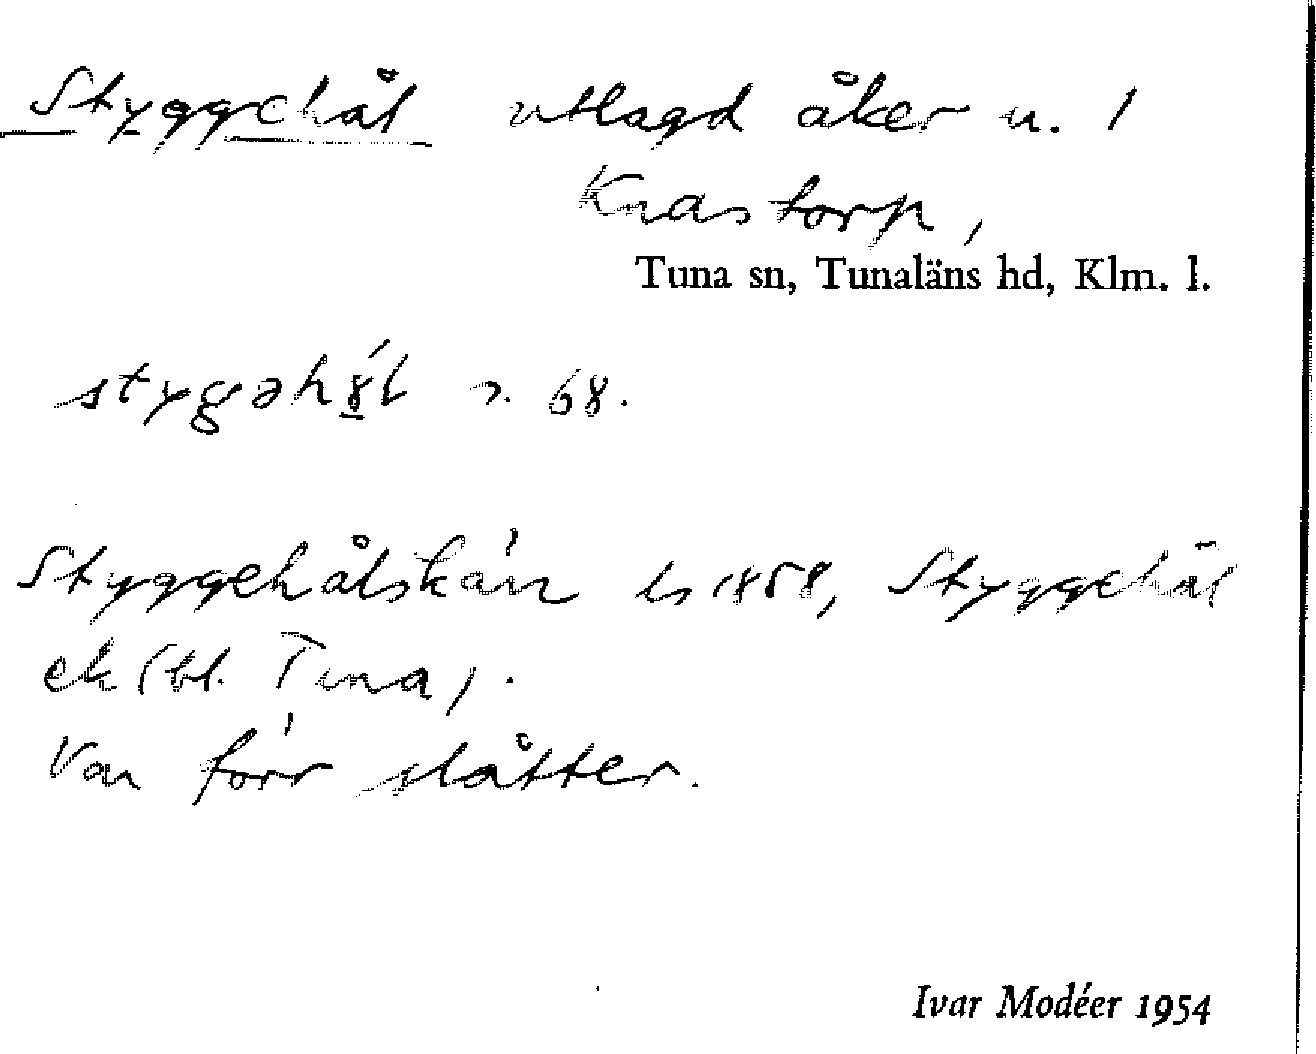 Styggehål utlagd åker u. 1
Knastorp,
Tuna sn, Tunaläns hd, Klm. l.
stygəh 68.
Styggehålskärr ls 1858, Styggehål
ek (bl. Tuna).
Var förr slåtter.
Ivar Modéer 1954